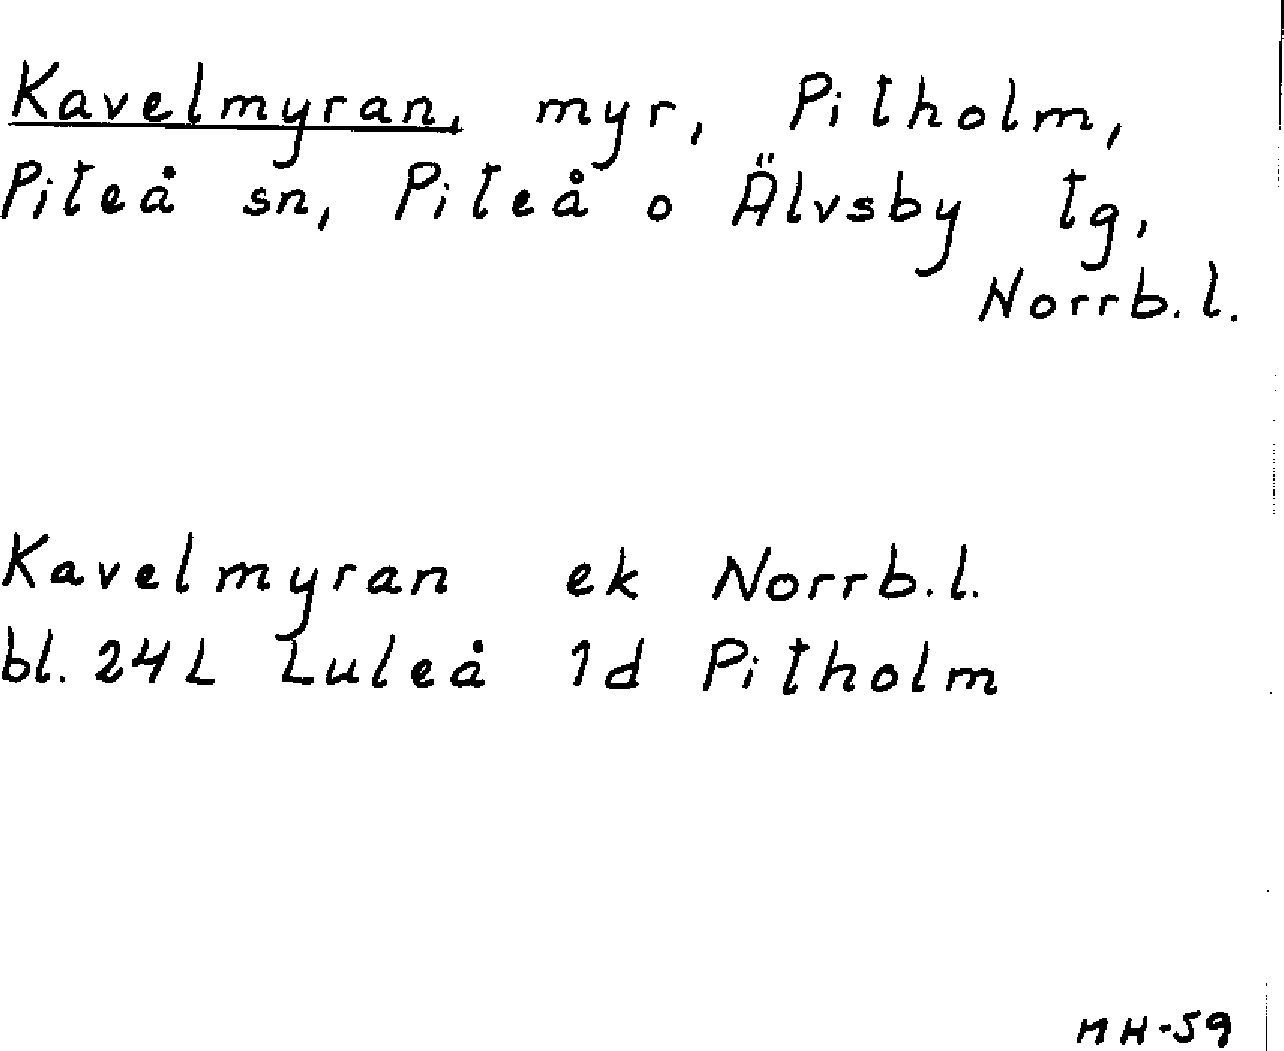 Kavelmyran, myr, Pitholm,
Piteå sn, Piteå o Älvsby tg,
Norrb.l.
Kavelmyran ek Norrb.l.
bl. 24L Luleå 1d Pitholm
MH-59